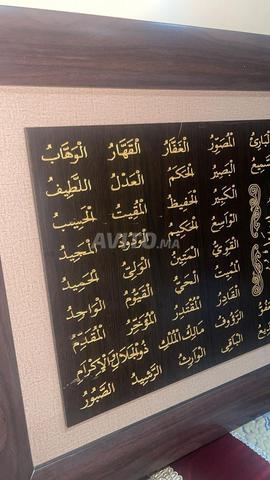 البارئ الْمُصَوِّرُ الْغَفَّارُ الْقَهَّارُ الْوَهَّابُ
ميع الْبَصِيرُ الْحَكَمُ الْعَدْلُ اللَّطِيفُ
الْكَبِيرُ الْحَفِيظُ الْمُقِيتُ الْحَسِيبُ
الْوَاسِعُ الْحَكِيمُ الْوَدُودُ الْمَجِيدُ
الْقَوِيُّ الْمَتِينُ الْوَلِيُّ الْحَمِيدُ
الْمُمِيتُ الْحَيُّ الْقَيُّومُ الْوَاجِدُ
الْقَادِرُ الْمُقْتَدِرُ الْمُؤَخِّرُ الْمُقَدِّمُ
الرَّؤُوفُ مَالِكُ الْمُلْكِ ذُو الْجَلَالِ وَالْإِكْرَامِ
الْبَاقِي الْوَارِثُ الرَّشِيدُ الصَّبُورُ
AVITO.MA